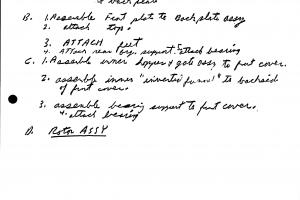 back plate
B. 1. Assemble Foot plate to Back plate assy
2. attach top.
3. ATTACH feet
4. Attach rear brg. support & attach bearing
C. 1. Assemble inner hopper & gate assy to front cover.
2. assemble inner "inverted funnel" to backside
of front cover.
3. assemble bearing support to front cover.
& attach bearing
D. Rotor ASSY